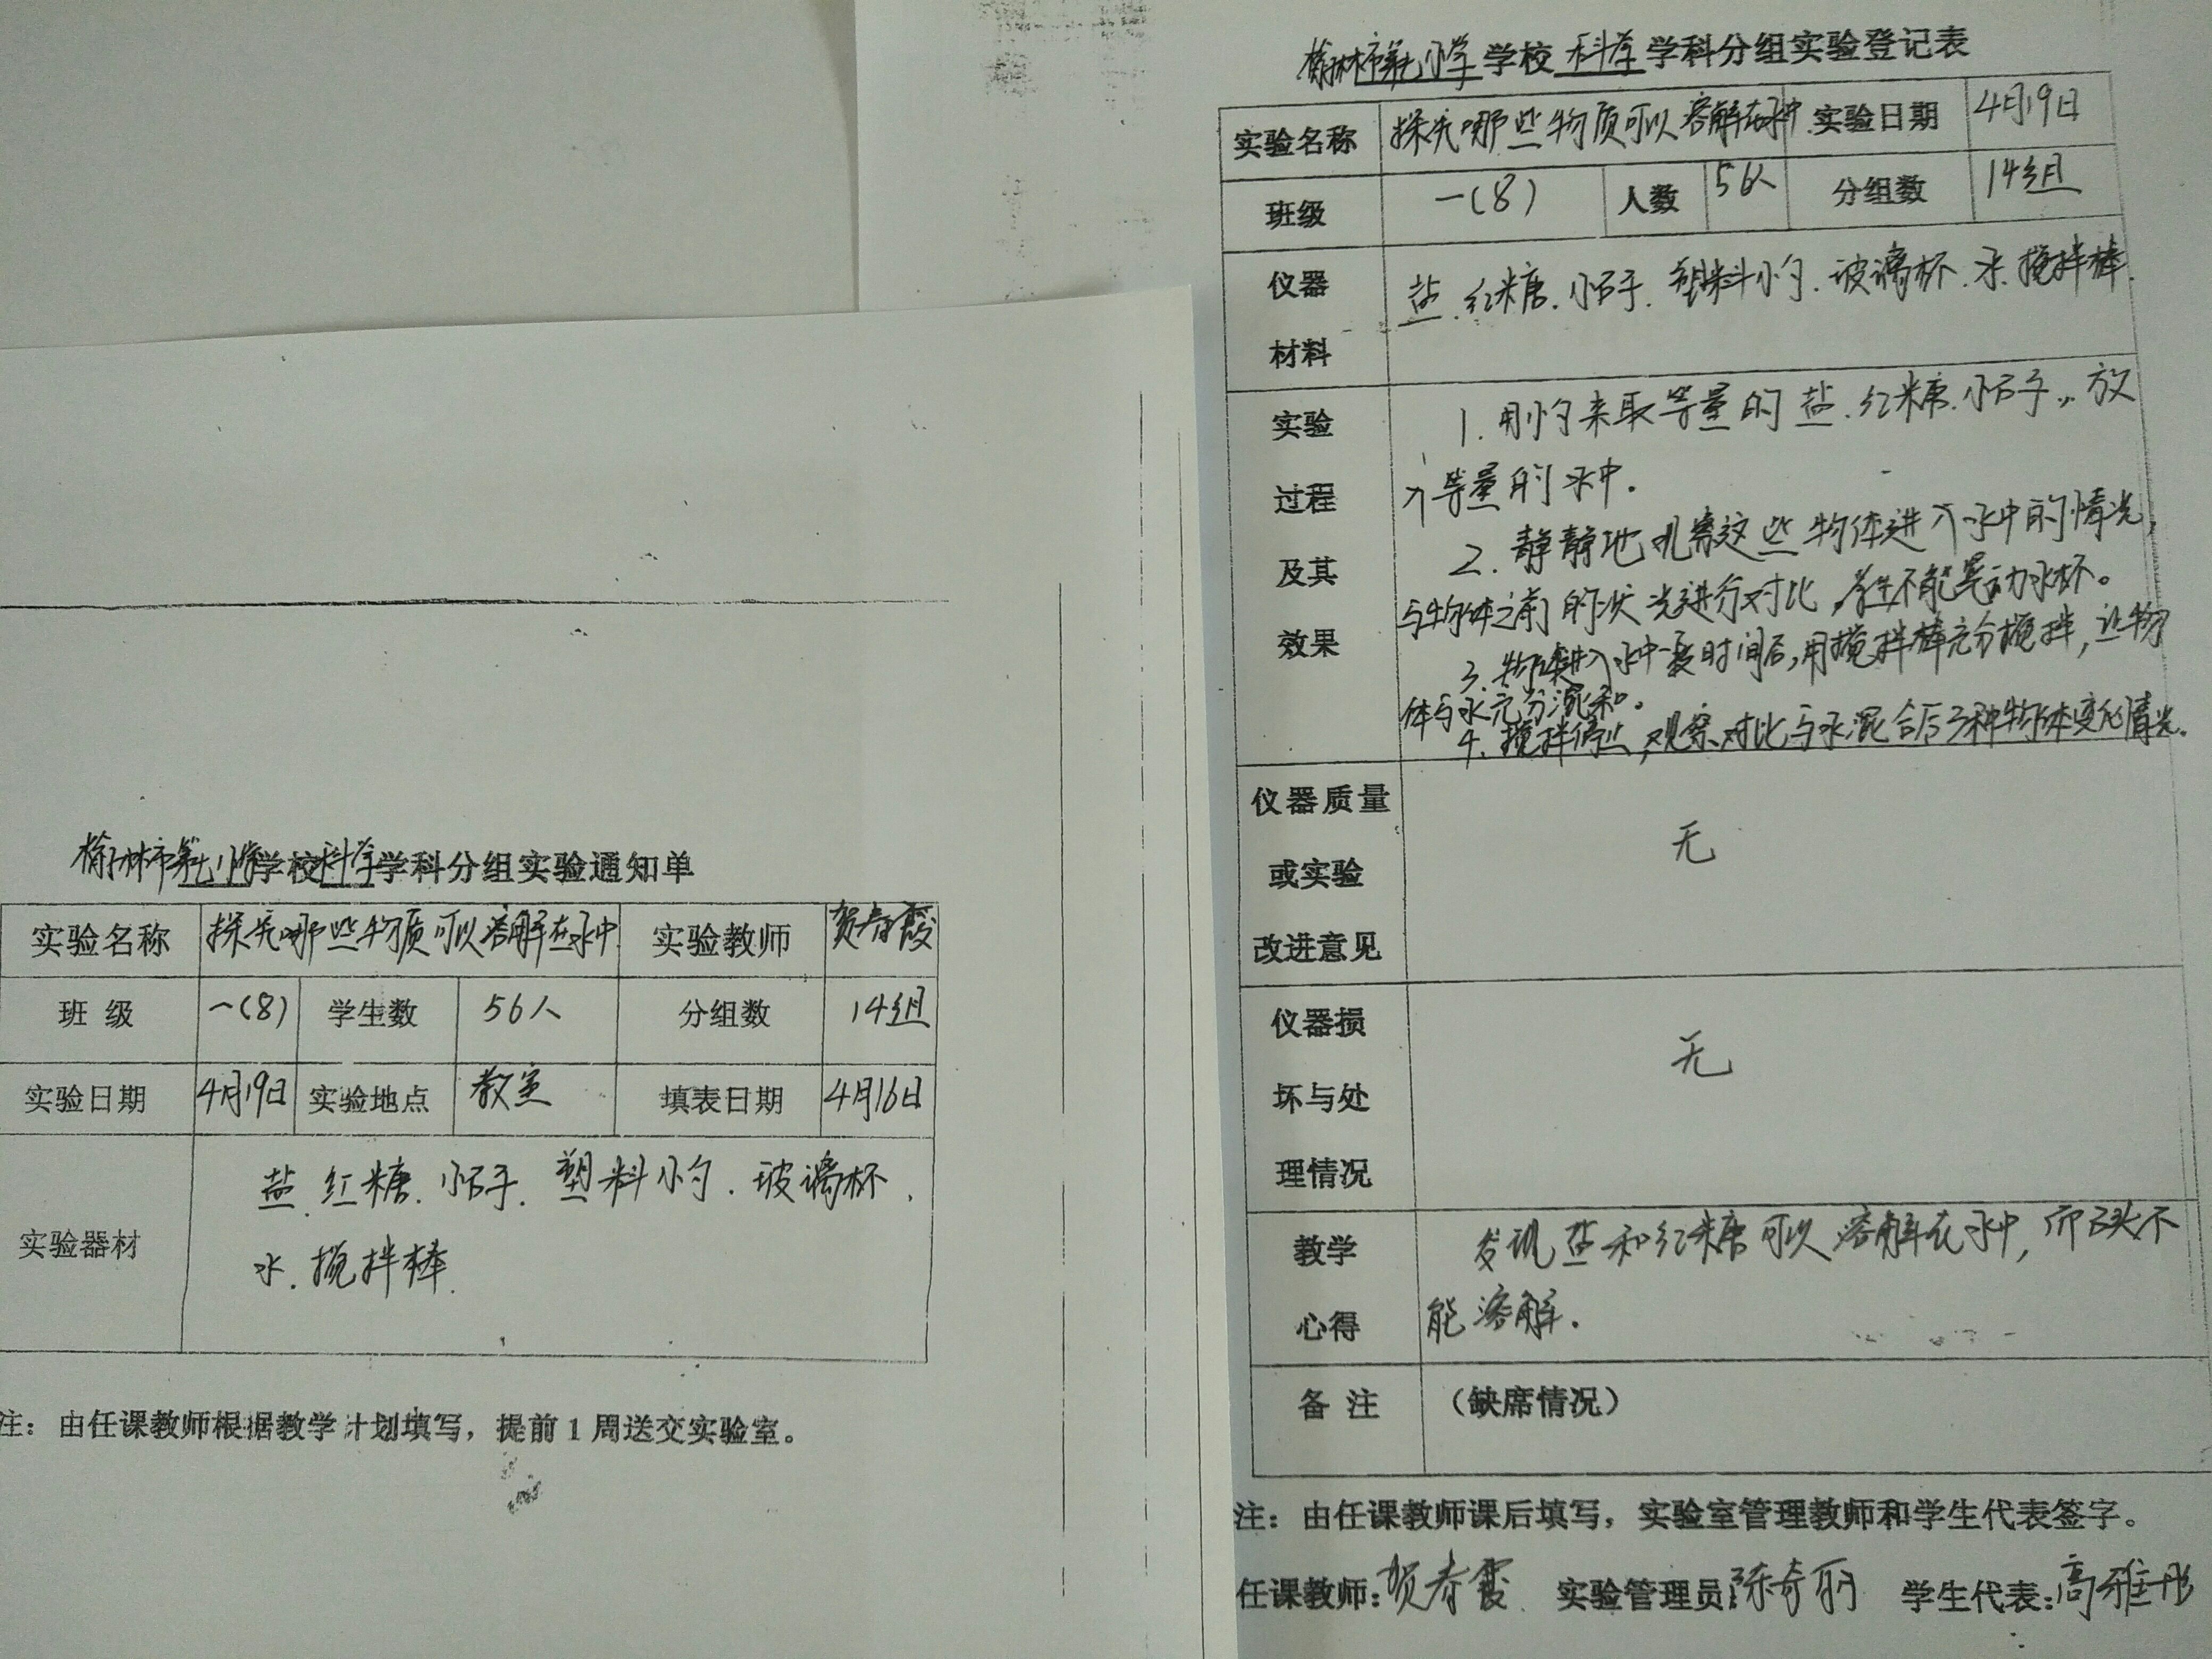 榆林市第七小学学校科学学科分组实验通知单
实验名称 探究哪些物质可以溶解在水中 实验教师 贺春霞
班 级 一(8) 学生数 56人 分组数 14组
实验日期 4月19日 实验地点 教室 填表日期 4月16日
实验器材 盐.红糖.小石子.塑料小勺.玻璃杯.
水.搅拌棒.
注：由任课教师根据教学计划填写，提前1周送交实验室。
榆林市第七小学学校科学学科分组实验登记表
实验名称 探究哪些物质可以溶解在水中. 实验日期 4月19日
班级 一(8) 人数 56人 分组数 14组
仪器
材料
盐.红糖.小石子.塑料小勺.玻璃杯.水.搅拌棒.
实验
过程
及其
效果
1.用小勺来取等量的盐.红糖.小石子,放
入等量的水中.
2.静静地观察这些物体进入水中的情况,
与物体之前的状况进行对比,学生不能晃动水杯。
3.物体进入水中一段时间后,用搅拌棒充分搅拌,让物
体与水充分混和。
4.搅拌停止,观察、对比与水混合后3种物体变化情况。
仪器质量
或实验
改进意见
无
仪器损
坏与处
理情况
无
教学
心得
发现盐和红糖可以溶解在水中,而石头不
能溶解.
备 注 （缺席情况）
注：由任课教师课后填写，实验室管理教师和学生代表签字。
任课教师:贺春霞 实验管理员:陈奇丽 学生代表:高雅彤